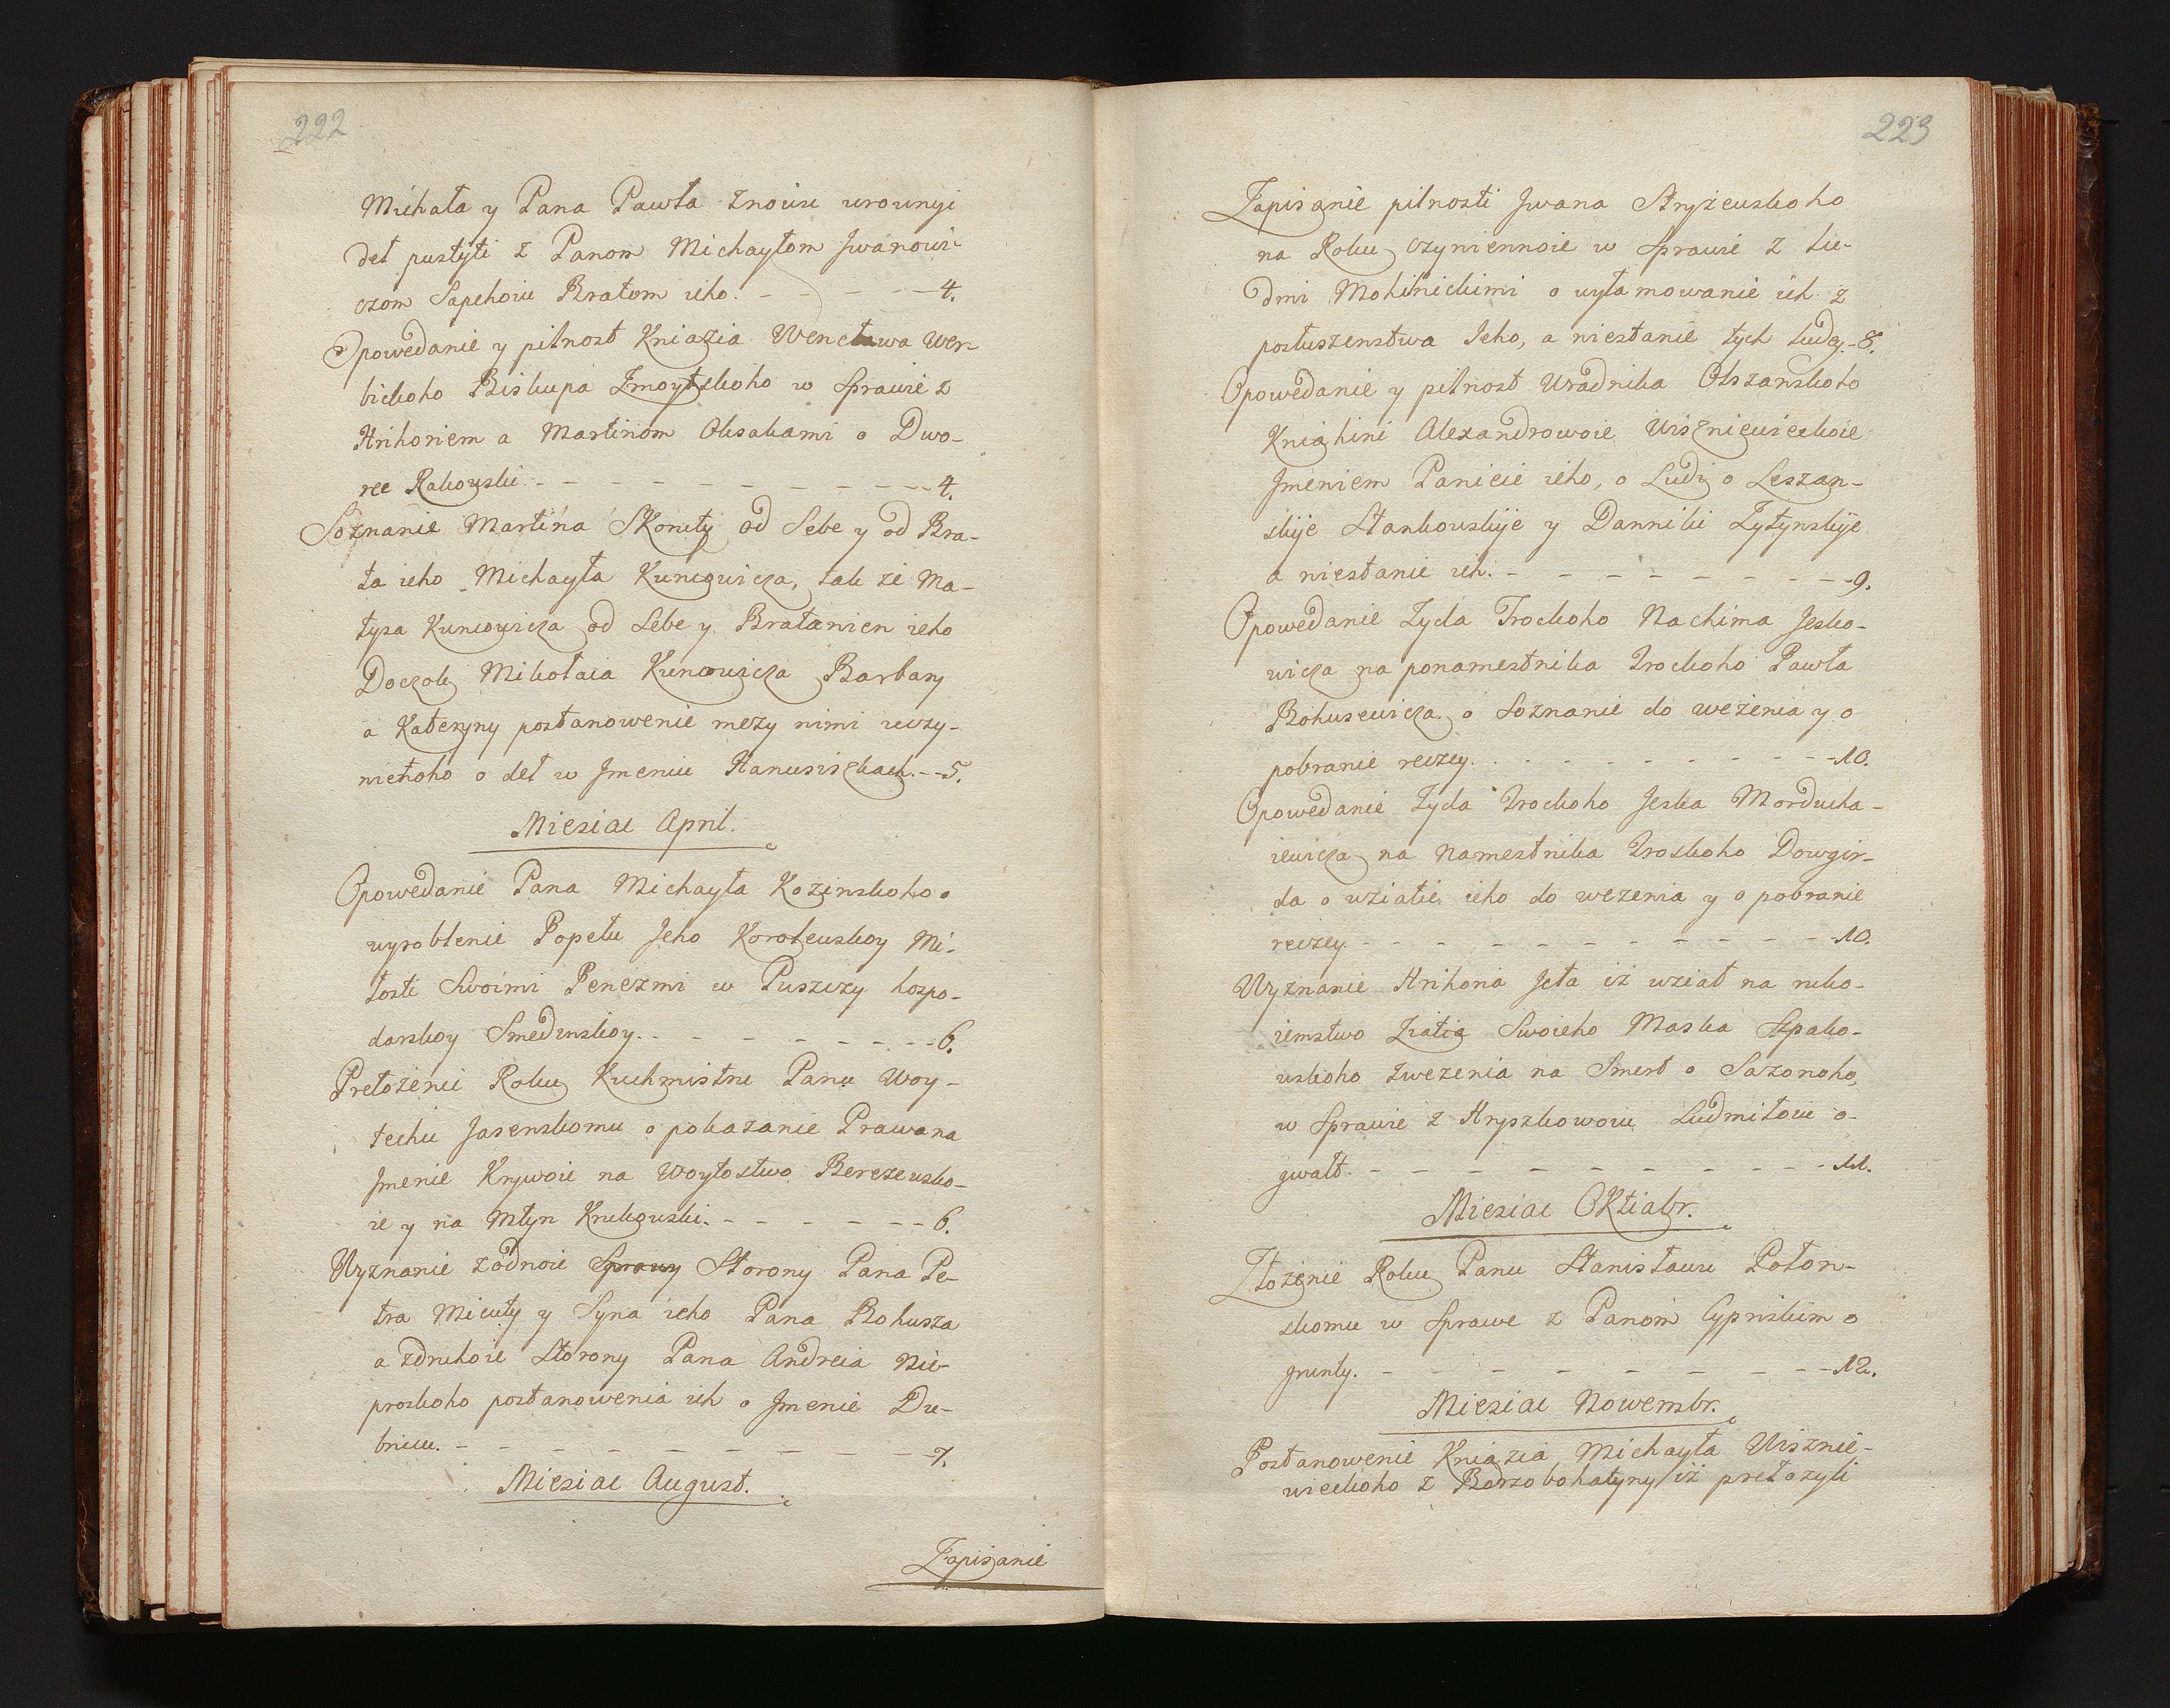 222
Michała y Pana Pawła znowu urownyi
deł pustyti z Panom Michayłom Jwanowi-
czom Sapehoiu Bratom ieho. - - - - - 4.
Opowedanie y pilnost Kniazia Wencława Wer-
bickoho Biskupa Żmoytskoho w Sprawie z
Hrihoriem a Martinom Oksakami o Dwo-
rec Rakowski. - - - - - - - - - 4.
Soznanie Martina Skonuty od Sebe y od Bra-
ta ieho Michayła Kuncowicza, tak że Ma-
tysa Kuncowicza od Sebe y Bratanien ieho
Doczok Mikołaia Kuncowicza Barbary
a Kateryny postanowenie meży nimi uczy-
niehoho o deł w Jmeniu Hanusiszkach. - - 5.
Miesiac April.
Opowedanie Pana Michayła Kozinskoho o
wyroblenie Popełu Jeho Korolewskoy Mi-
łosti Swoimi Penezmi w Puszczy hospo-
darskoy Smedinskoy. - - - - - - - 6.
Prełożenie Roku Kuchmistru Panu Woy-
techu Jasenskomu o pokazanie Prawa na
Jmenie Krywoie na Woytostwo Berezewsko-
ie y na Młyn Krukowski. - - - - - - 6.
Wyznanie zodnoie Sprawy Storony Pana Pe-
tra Micuty y Syna ieho Pana Bohusza
a zdruhoie Storony Pana Andreia Nie-
proskoho postanowenia ich o Jmenie Du-
bnicu. - - - - - - - - - - 7.
Miesiac August.
Zapisanie
223
Zapisanie pilnosti Jwana Stryżewskoho
na Roku czyniennoie w Sprawie z Lu-
dmi Mohilnickimi o wyłamowanie ich z
posłuszenstwa Jeho, a niestanie tych Ludey. - 8.
Opowedanie y pilnost Uradnika Olszanskoho
Kniahini Alexandrowoie Wiszniewieckoie
Jmeniem Panieie ieho, o Ludi o Leszan-
skije Stankowskije y Danniki Żytynskije
a niestanie ich. - - - - - - - - 9.
Opowedanie Żyda Trockoho Nachima Jesko-
wicza na ponamestnika Trockoho Pawła
Bohusewicza o Soznanie do weżenia y o
pobranie reczey. - - - - - - - - 10.
Opowedanie Żyda Trockoho Jeska Morducha-
iewicza na Namestnika Troskoho Dowgir-
da o wziatie ieho do wezenia y o pobranie
reczey. - - - - - - - - - - - 10.
Wyznanie Hrihoria Jeła iż wział na ruko-
iemstwo Ziatia Swoieho Maska Szpako-
wskoho zwezenia na Smert o Sazonoho,
w Sprawie z Hryszkowoiu Ludmiłoiu o
gwałt. - - - - - - - - - 11.
Miesiac Oktiabr.
Złożenie Roku Panu Stanisławu Połon-
skomu w Sprawe z Panom Cypriskim o
grunty. - - - - - - - - - 12.
Miesiac Nowembr.
Postanowenie Kniazia Michayła Wisznie-
wieckoho z Borzobohatyny iż prełozyli